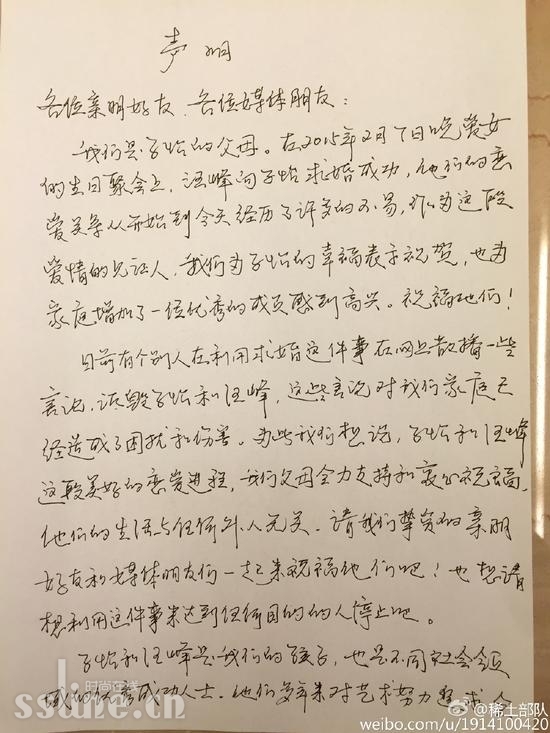 声明
各位亲朋好友、各位媒体朋友：
我们是子怡的父母。在2015年2月7日晚爱女
的生日聚会上，汪峰向子怡求婚成功，他们的恋
爱关系从开始到今天经历了许多的不易，作为这段
爱情的见证人，我们为子怡的幸福表示祝贺，也为
家庭增加了一位优秀的成员感到高兴。祝福他们！
目前有个别人在利用求婚这件事在网上散播一些
言论，诋毁子怡和汪峰，这些言论对我们家庭已
经造成了困扰和伤害。为此我们想说，子怡和汪峰
这段美好的恋爱进程，我们父母全力支持和衷心祝福，
他们的生活与任何外人无关。请我们挚爱的亲朋
好友和媒体朋友们一起来祝福他们吧！也想请
想利用这件事来达到任何目的的人停止吧。
子怡和汪峰是我们的孩子，也是不同社会领
域的优秀成功人士。他们多年来对艺术努力追求
时尚在线
sstime.cn
@稀土部队
weibo.com/u/1914100420